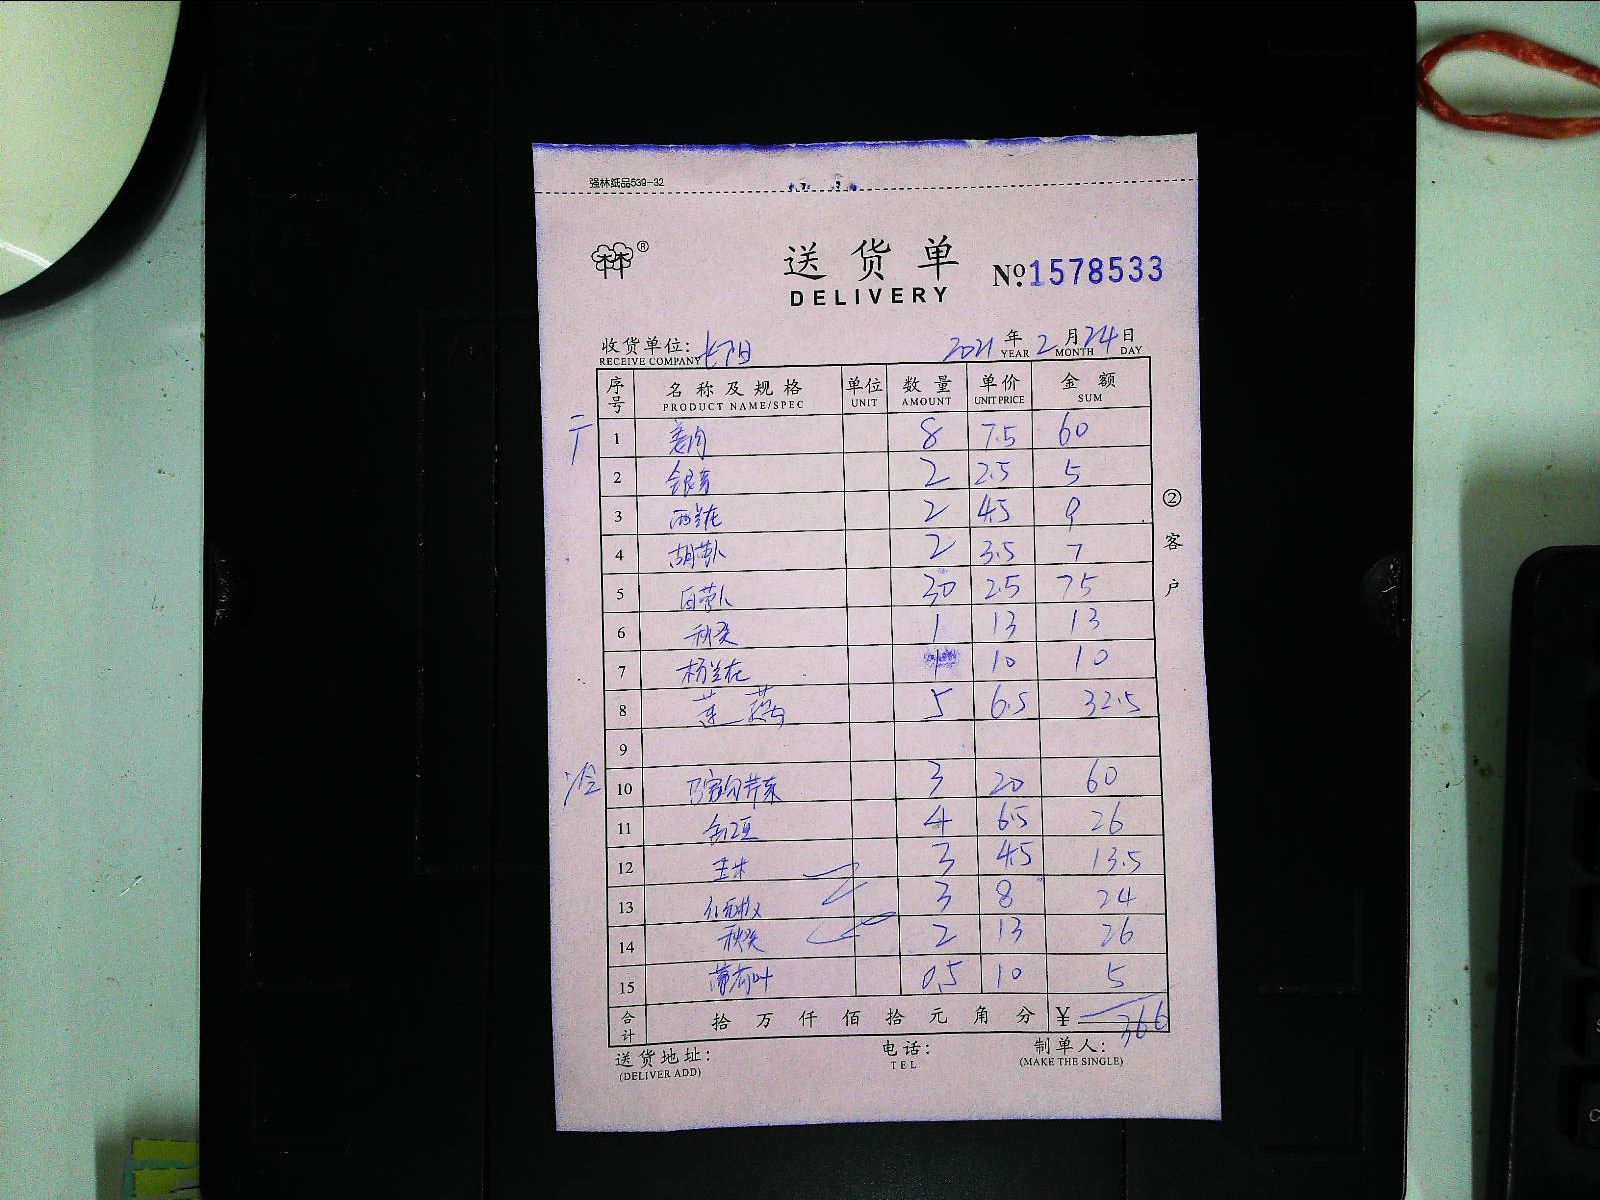 强林纸品539-32
林®
送货单
DELIVERY
No.1578533
收货单位:
RECEIVE COMPANY
2021年2月24日
YEAR MONTH DAY
序号 名称及规格 单位 数量 单价 金额
PRODUCT NAME/SPEC UNIT AMOUNT UNIT PRICE SUM
1 姜肉 8 7.5 60
2 银芽 2 2.5 5
3 西兰花 2 4.5 9
4 胡萝卜 2 3.5 7
5 白萝卜 30 2.5 75
6 秋葵 1 13 13
7 杨兰花 1 10 10
8 5 6.5 32.5
9
冷
10 3 20 60
11 4 6.5 26
12 3 4.5 13.5
13 3 8 24
14 秋葵 2 13 26
15 薄荷叶 0.5 10 5
合计 拾万仟佰拾元角分 ¥ 366
送货地址: 电话: 制单人:
(DELIVER ADD) TEL (MAKE THE SINGLE)
②客户